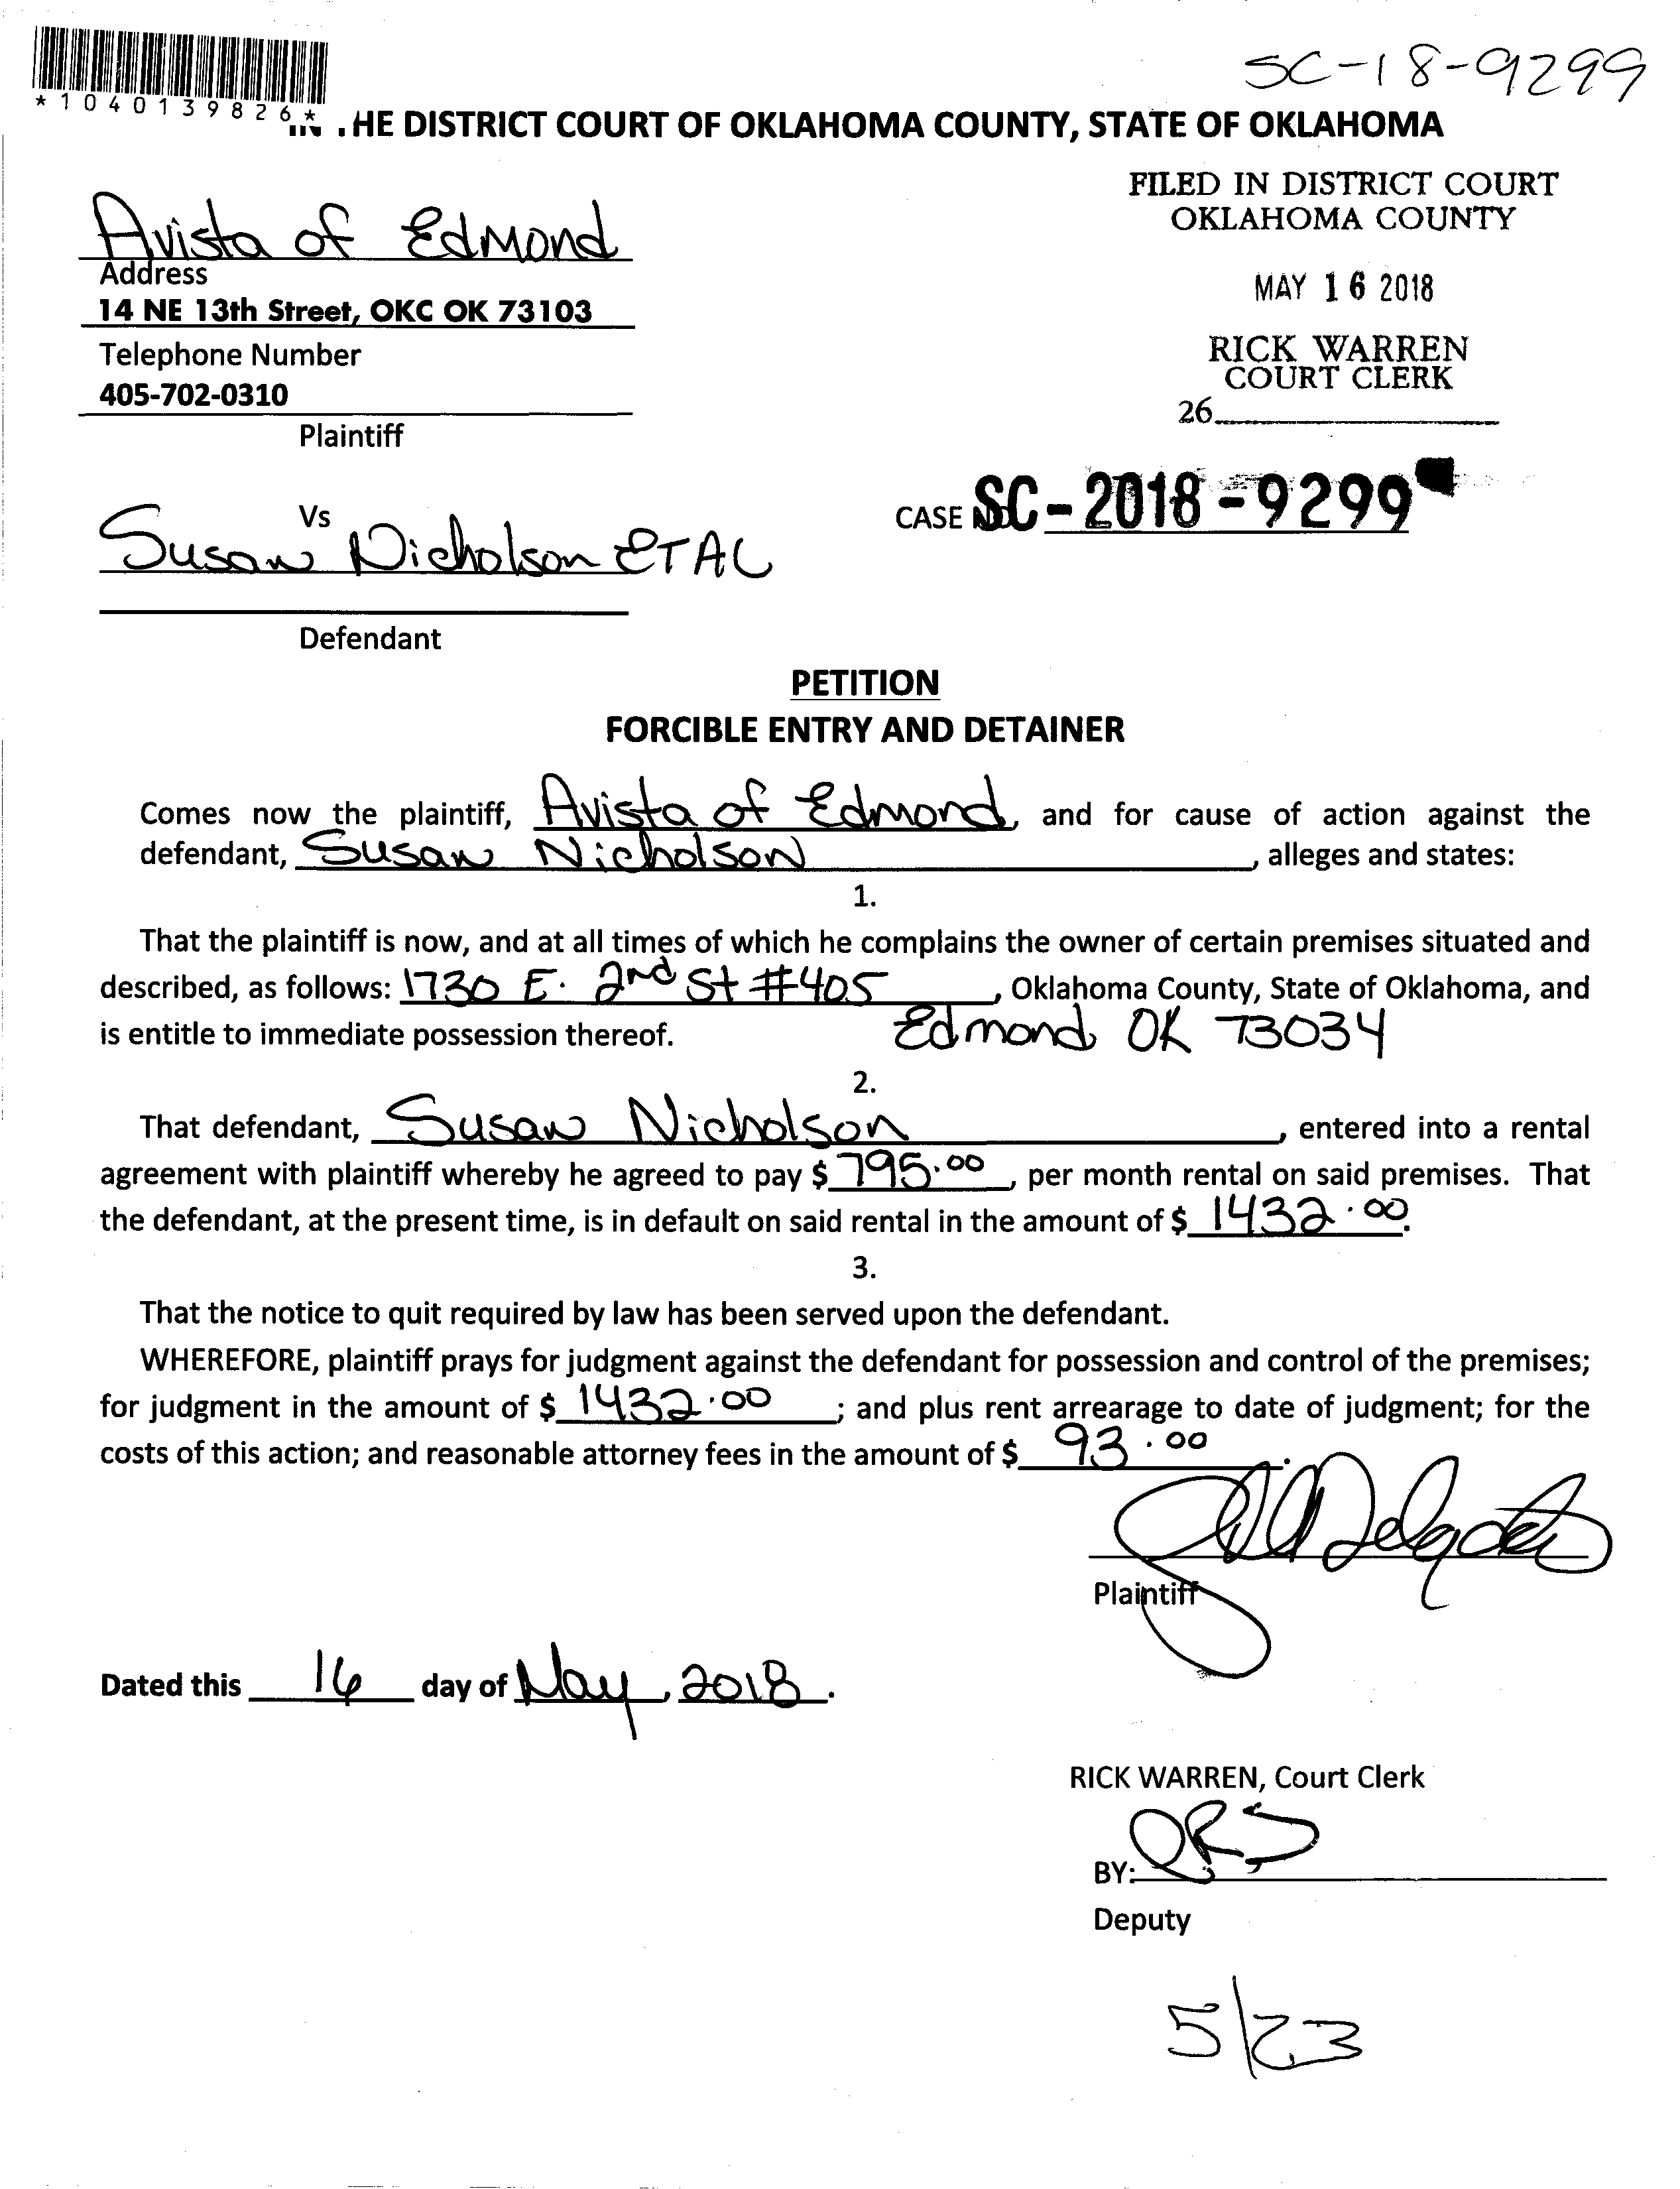 SC-18-9299
*1040139826*
HE DISTRICT COURT OF OKLAHOMA COUNTY, STATE OF OKLAHOMA
FILED IN DISTRICT COURT
OKLAHOMA COUNTY
MAY 16 2018
RICK WARREN
COURT CLERK
26
Avista of Edmond
Address
14 NE 13th Street, OKC OK 73103
Telephone Number
405-702-0310
Plaintiff
Vs
CASE NO SC-2018-9299
Susan Nicholson ETAL
Defendant
PETITION
FORCIBLE ENTRY AND DETAINER
Comes now the plaintiff, Avista of Edmond, and for cause of action against the
defendant, Susan Nicholson, alleges and states:
1.
That the plaintiff is now, and at all times of which he complains the owner of certain premises situated and
described, as follows: 1730 E. 2nd St #405, Oklahoma County, State of Oklahoma, and
is entitle to immediate possession thereof. Edmond OK 73034
2.
That defendant, Susan Nicholson, entered into a rental
agreement with plaintiff whereby he agreed to pay $ 795.00, per month rental on said premises. That
the defendant, at the present time, is in default on said rental in the amount of $ 1432.00.
3.
That the notice to quit required by law has been served upon the defendant.
WHEREFORE, plaintiff prays for judgment against the defendant for possession and control of the premises;
for judgment in the amount of $ 1432.00; and plus rent arrearage to date of judgment; for the
costs of this action; and reasonable attorney fees in the amount of $ 93.00.
Plaintiff
Dated this 16 day of May, 2018.
RICK WARREN, Court Clerk
BY:
Deputy
5/23